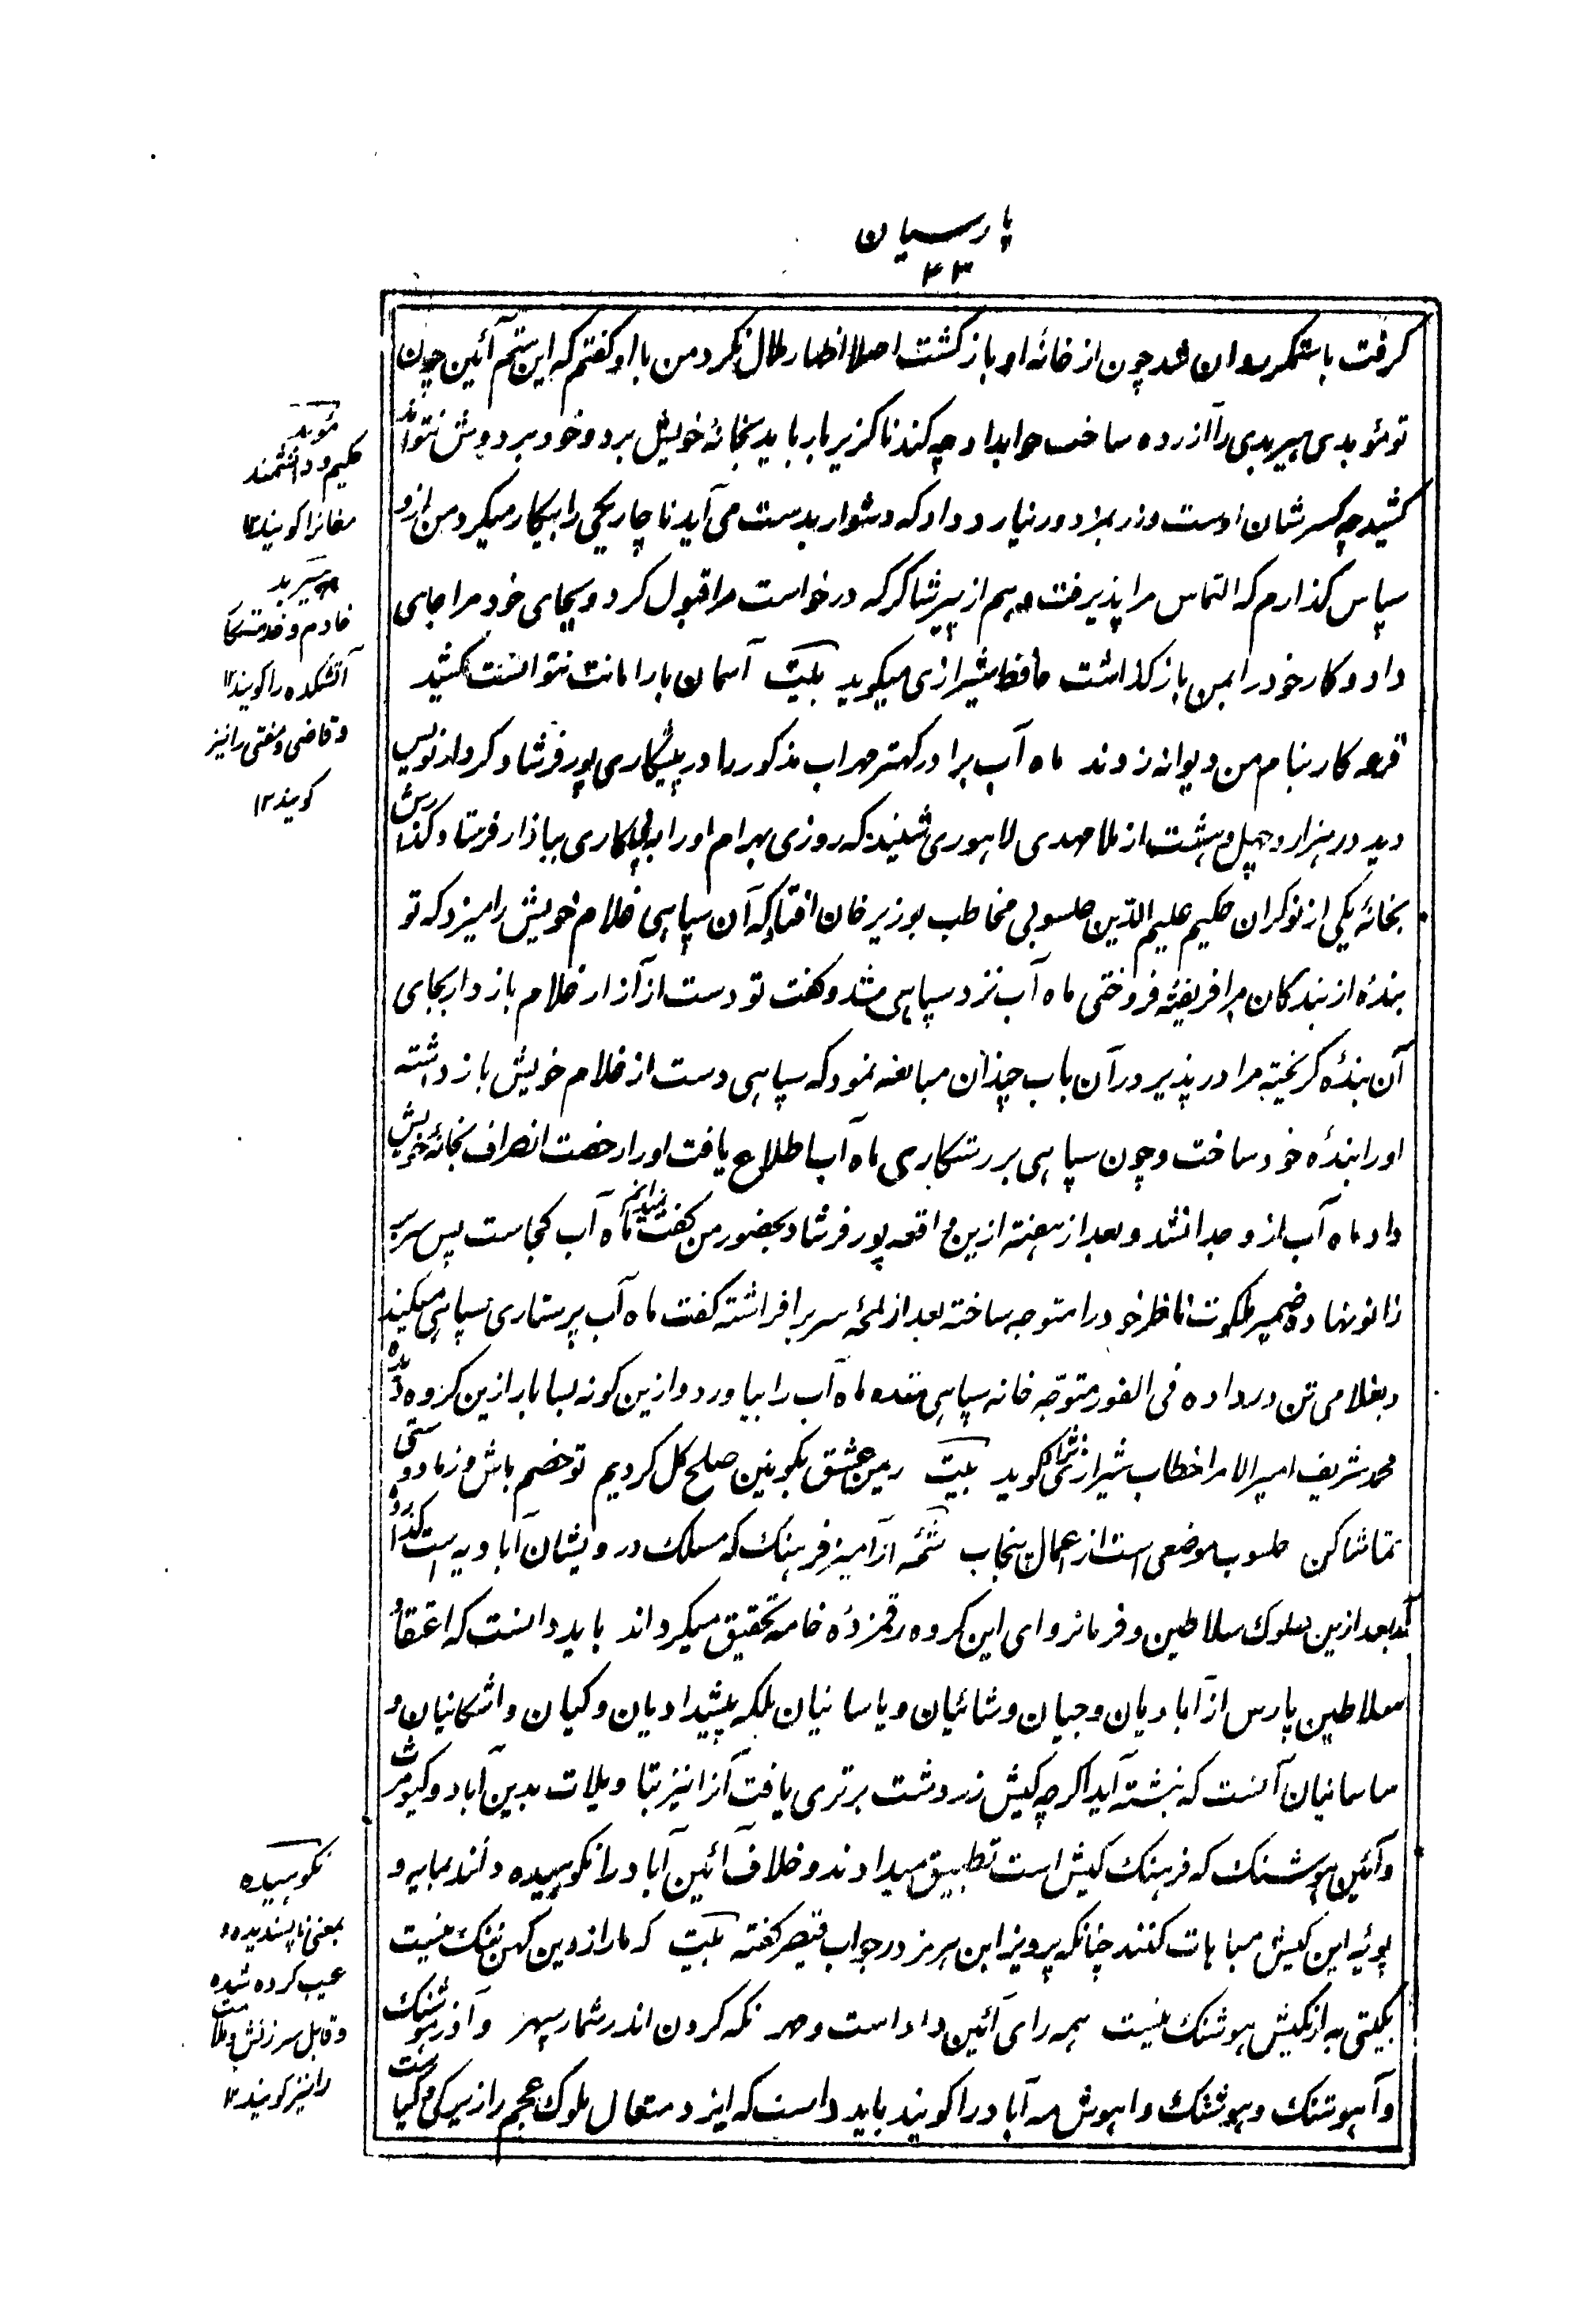 پارسیان
۴۳
کرفت باستمکر روان شد چون از خانهٔ او باز کشت اصلا اظهار ملال نکرد من با او کفتم که این ستم آئین چون
تو مؤبدی هیربدی را آزرده ساخت جوابداد چه کند ناکزیر بار باید بخانهٔ خویش برد و خود بر دوش نتواند
کشید چه کسر شان اوست و زر بمزدور نیارد داد که دشوار بدست می آید ناچار یکی را بیکار میکرد من ازو
سپاس کذارم که التماس مرا پذیرفت و هم از پیر شاکر که درخواست مرا قبول کرد و بجای خود مرا جای
داد و کار خود را بمن باز کذاشت حافظ شیرازی میکوید بیت آسمان بار امانت نتوانست کشید
قرعه کار بنام من دیوانه زدند ماه آب برادر کهتر مهراب مذکور را در پیشکاری پور فرشاد کردار نویس
دید در هزار و چهل و هشت از ملا مهدی لاهوری شنیند که روزی بهرام اورا به پیکاری ببازار فرستاد کذارش
بخانهٔ یکی از نوکران حکیم علیم الدین چلسوبی مخاطب بوزیر خان افتاد که آن سپاهی غلام خویش را میزد که تو
بندهٔ از بندکان مرا فریفته فروختی ماه آب نزد سپاهی شد و کفت تو دست از آزار غلام باز دار بجای
آن بندهٔ کریخته مرا در پذیر در آن باب چندان مبالغه نمود که سپاهی دست از غلام خویش باز داشته
اورا بندهٔ خود ساخت و چون سپاهی بر رستکاری ماه آب اطلاع یافت اورا رخصت انصراف بخانهٔ خویش
داد ماه آب از و جدا نشد و بعد از هفته ازین واقعه پور فرشاد بحضور من کفت نمیدانم ماه آب کجاست پس سر بر
زانو نهاده ضمیر ملکوت ناظر خود را متوجه ساخته بعد از لمحهٔ سر بر افراشته کفت ماه آب پرستاری سپاهی میکند
و بغلامی تن در داده فی الفور متوجّه خانه سپاهی شده ماه آب را بیاورد و ازین کونه بسا بار ازین کروه دیده شد
محمد شریف امیر الامرا خطاب شیرازی نژاد کوید بیت زمین عشق بکونین صلح کل کردیم تو خصم باش و ز ما دوستی
تماشا کن چلسوب موضعی است از اعمال پنجاب شمّهٔ از آمیز فرهنک که مسلک درویشان آبادیه است کذارده
آمد بعد ازین سلوک سلاطین و فرمانروای این کروه رقمزدهٔ خامه تحقیق میکرداند باید دانست که اعتقاد
سلاطین پارس از آبادیان و جیان و شائیان و یاسانیان بلکه پیشدادیان و کیان و اشکانیان و
ساسانیان آنست که نبشته آید اکرچه کیش زردشت برتری یافت آنرا نیز بتاویلات بدین آباد و کیومرث
و آئین هوشنک که فرهنک کیش است تطبیق میدادند و خلاف آئین آباد را نکوهیده دانند بمایه و
پوئیه این کیش مباهات کنند چنانکه پرویز ابن هرمز در جواب قیصر کفته بیت که ما را ز دین کهن ننک نیست
بکیتی به از کیش هوشنک نیست همه رای آئین داد است و مهر نکه کردن اندر شمار سپهر و آذر هوشنک
و آهوشنک و هوشنک و اهوش مه آباد را کویند باید دانست که ایزد متعال ملوک عجم را زیرکی و کیاست
مؤبد
حکیم و دانشمند
مغانرا کویند ۱۲
هیربد
خادم و خدمتکار
آتشکده را کویند ۱۲
و قاضی و مفتی را نیز
کویند ۱۲
نکوهیده
بمعنی ناپسندیده و
عیب کرده شده
و قابل سرزنش و ملامت
را نیز کویند ۱۲